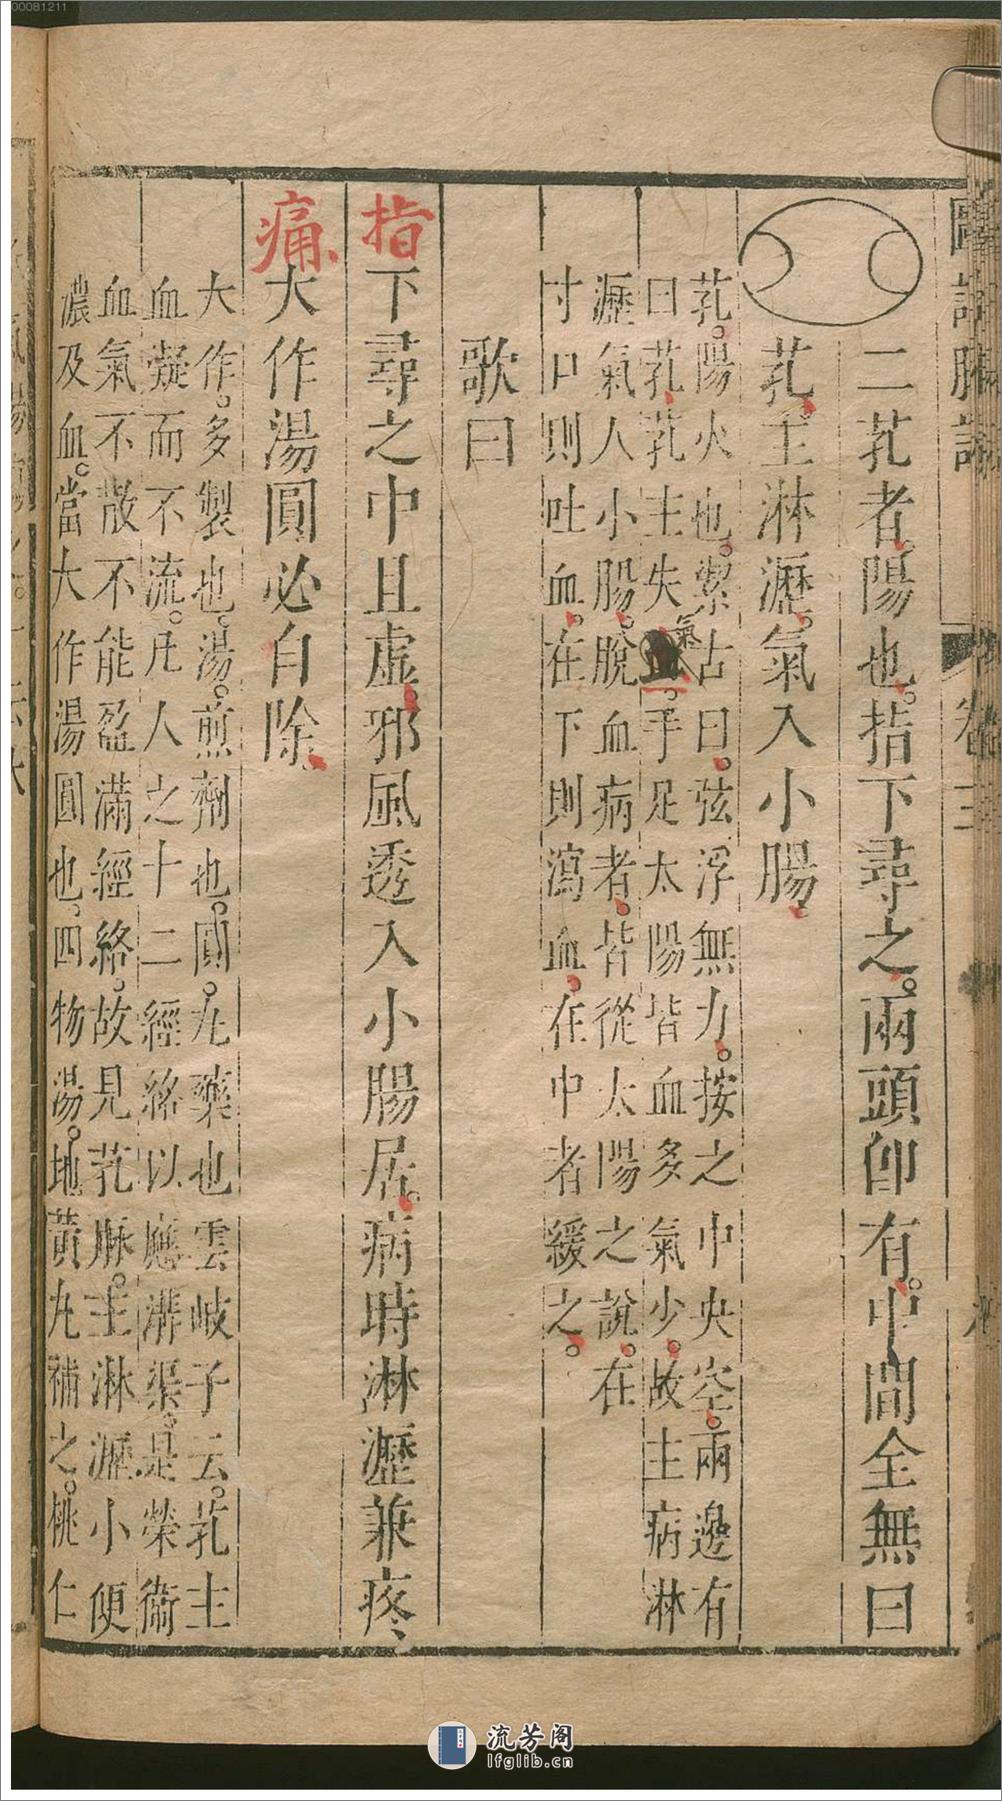 00081211
二芤者陽也指下尋之兩頭卽有中間全無曰
芤主淋瀝氣入小腸
芤陽火也潔古曰弦浮無力按之中央空兩邊有
曰芤芤主失血氣手足太陽皆血多氣少故主病淋
瀝氣入小腸脫血病者皆從太陽之說在
寸口則吐血在下則瀉血在中者緩之
歌曰
指下尋之中且虛邪風透入小腸居病時淋瀝兼疼
痛大作湯圓必自除
大作多製也湯煎劑也圓丸藥也雲岐子云芤主
血凝而不流凡人之十二經絡以應溝渠是榮衛
血氣不散不能盈滿經絡故見芤脉主淋瀝小便
濃及血當大作湯圓也四物湯地黃丸補之桃仁
卷三
流芳阁
lfglib.cn